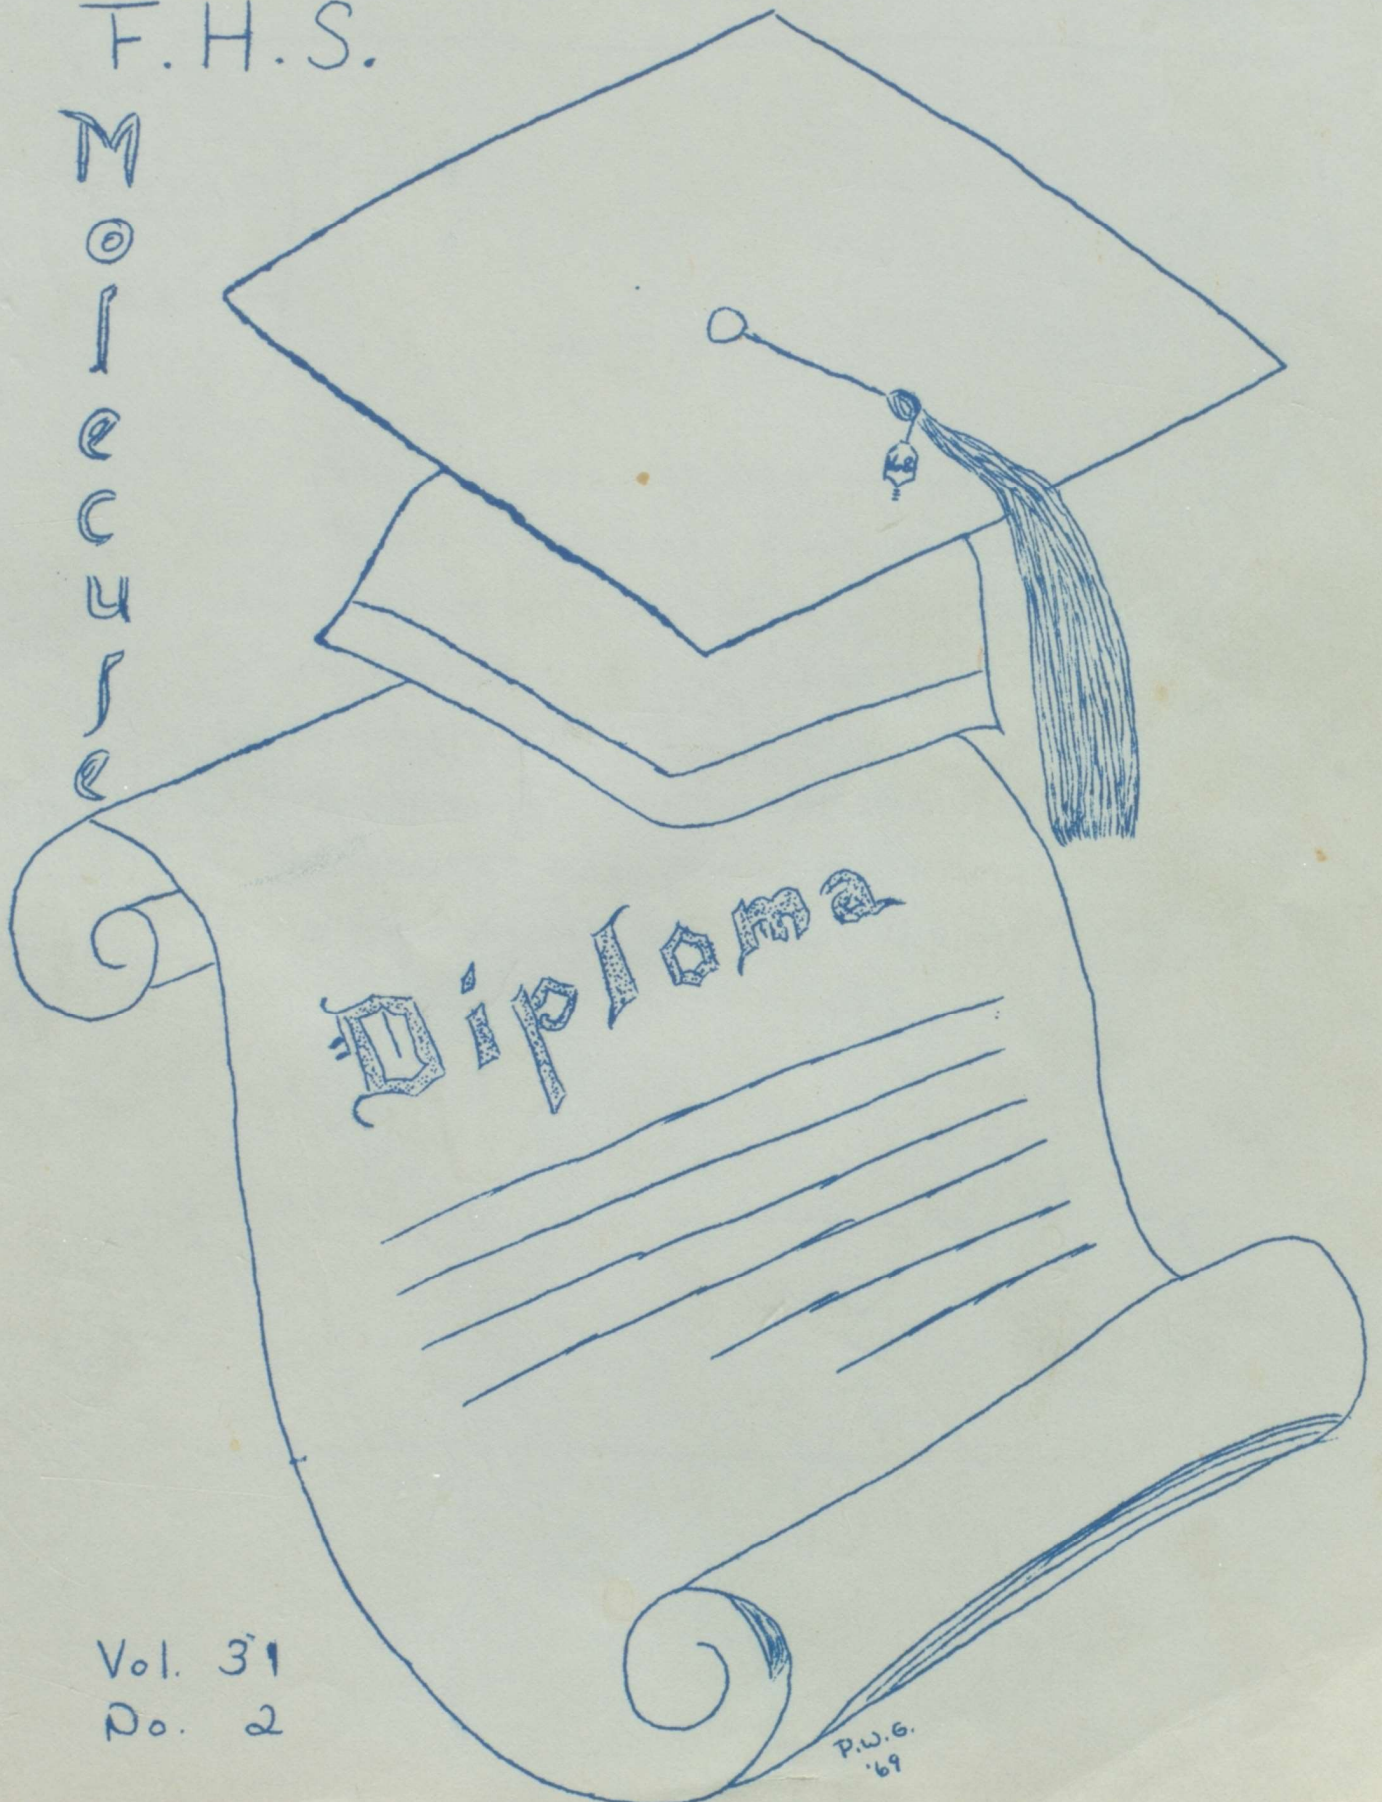 F.H.S.
Molecule
68
Diploma
Vol. 31
No. 2
P.W.G.
'69